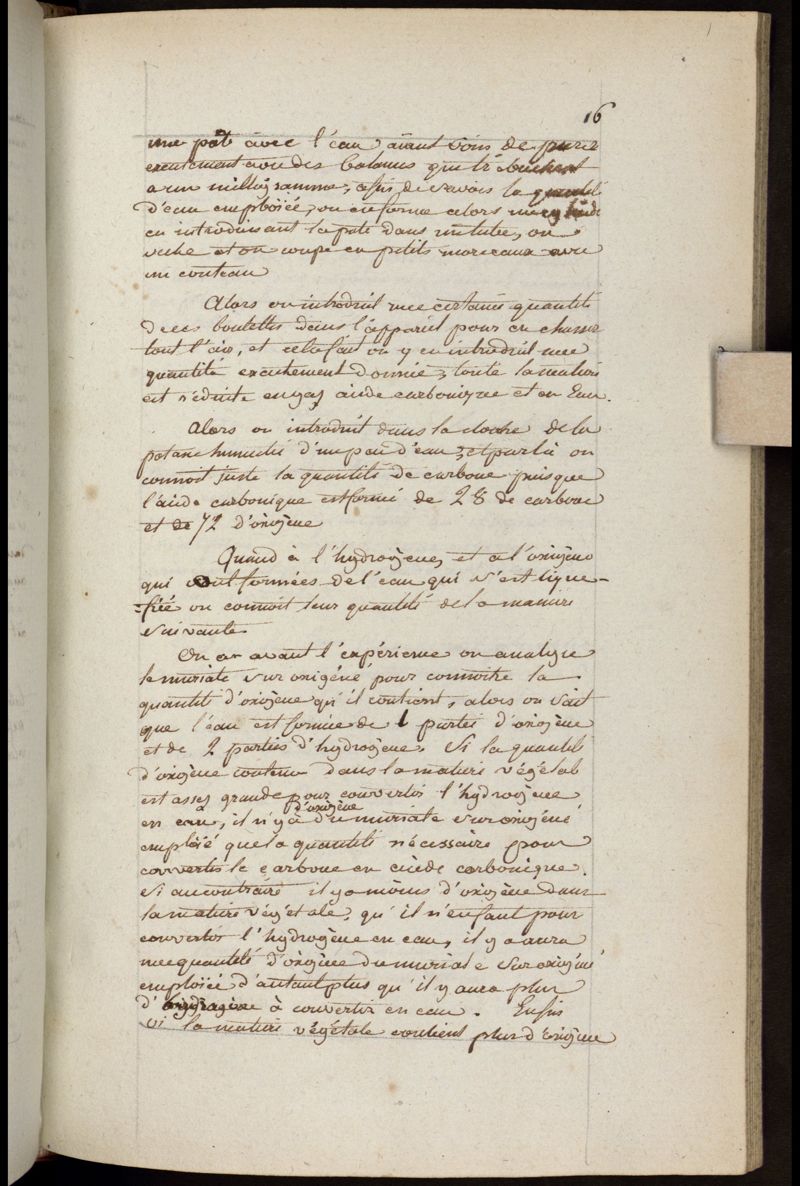 16
une pâte avec l'eau ayant soin de peser
exactement avec des balances qui trébuchent
a un milligramme, afin de savoir la quantité
d'eau emploiée, on en forme alors un cylindre
en introduisant la pate dans un tube, on
seche et on coupe en petits morceaux avec
un couteau
Alors on introduit une certaine quantité
de ces boulettes dans l'appareil pour en chasser
tout l'air, et cela fait on y en introduit une
quantité exactement donnée; toute la matiere
est réduite en gaz acide carbonique et en Eau.
Alors on introduit dans la cloche de la
potasse humectée d'un peu d'eau, et par là on
connoit juste la quantité de carbone puisque
l'acide carbonique est formé de 28 de carbone
et de 72 d'oxigène
Quand à l'hydrogène, et a l'oxigène
qui sont formées de l'eau qui s'est lique-
=fiée on connoit leur quantité de la maniere
suivante
On a avant l'expérience on analyse
le muriate sur oxigéné pour connoitre la
quantité d'oxigene qu'il contient, alors on sait
que l'eau est formée de 1 partie d'oxigène
et de 2 parties d'hydrogène. Si la quantité
d'oxigène contenue dans la matiere végétale
est assez grande pour convertir l'hydrogène
en eau, il n'y a d'oxigène du muriate suroxigéné
emploié que la quantité nécessaire pour
convertir le carbone en acide carbonique.
Si au contraire il y a moins d'oxigène dans
la matiere végétale, qu'il n'en faut pour
convertir l'hydrogène en eau, il y aura
une quantité d'oxigène du muriate suroxigéné
emploiée d'autant plus qu'il y aura plus
d'hydrogène à convertir en eau. Enfin
si la matiere végétale contient plus d'oxigene